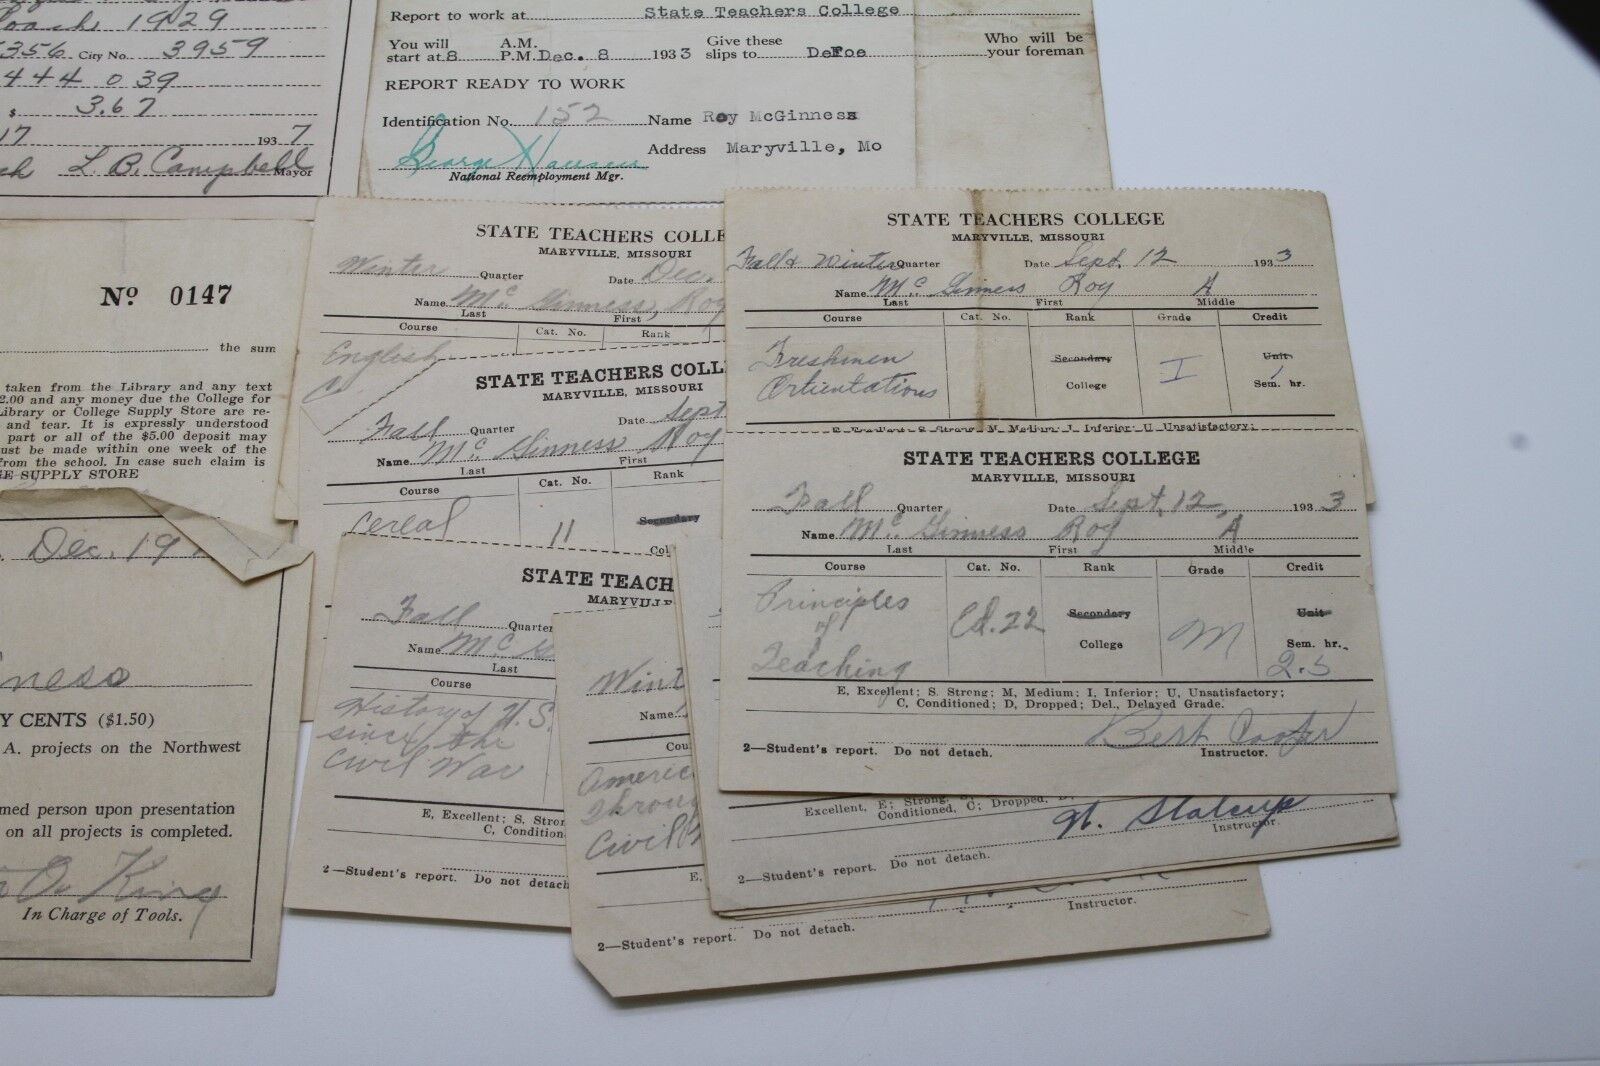 Coach 1929
356 City No. 3959
444 039
$ 3.67
17 1937
L. B. Campbell
Mayor
Report to work at State Teachers College
You will start at 8 A.M. P.M. Dec. 8 1933 Give these slips to DeFoe Who will be your foreman
REPORT READY TO WORK
Identification No. 152 Name Roy McGinness
Address Maryville, Mo
National Reemployment Mgr.
No 0147
the sum
taken from the Library and any text
2.00 and any money due the College for
Library or College Supply Store are re-
and tear. It is expressly understood
part or all of the $5.00 deposit may
ust be made within one week of the
from the school. In case such claim is
GE SUPPLY STORE
Dec. 19
ness
Y CENTS ($1.50)
A. projects on the Northwest
med person upon presentation
on all projects is completed.
King
In Charge of Tools.
STATE TEACHERS COLLE
MARYVILLE, MISSOURI
Winter Quarter Date Dec.
Name Mc Ginness, Roy
Last First
Course Cat. No. Rank
English
STATE TEACHERS COLL
MARYVILLE, MISSOURI
Fall Quarter Date Sept
Name Mc Ginness Roy
Last First
Course Cat. No. Rank
Cereal 11 Secondary
Col
STATE TEACH
MARYVILLE
Fall Quarter
Name Mc G
Last
Course
History of U.S.
since the
Civil War
E, Excellent; S. Stron
C, Condition
2—Student's report. Do not detach
Wint
Name
Cou
Americ
Throug
Civil
E,
Instructor.
2—Student's report. Do not detach.
STATE TEACHERS COLLEGE
MARYVILLE, MISSOURI
Fall & Winter Quarter Date Sept. 12 1933
Name Mc Ginness Roy A
Last First Middle
Course Cat. No. Rank Grade Credit
Freshmen Secondary I Unit
Orientations College 1 Sem. hr.
E, Excellent; S, Strong; M, Medium; I, Inferior; U, Unsatisfactory;
STATE TEACHERS COLLEGE
MARYVILLE, MISSOURI
Fall Quarter Date Sept. 12, 1933
Name Mc Ginness Roy A
Last First Middle
Course Cat. No. Rank Grade Credit
Principles Secondary Unit
of Ed. 22 College M Sem. hr.
Teaching 2.5
E, Excellent; S. Strong; M, Medium; I, Inferior; U, Unsatisfactory;
C, Conditioned; D, Dropped; Del., Delayed Grade.
Bert Cooper
2—Student's report. Do not detach. Instructor.
Excellent, E; Strong,
Conditioned, C; Dropped, D
Instructor.
2—Student's report. Do not detach.